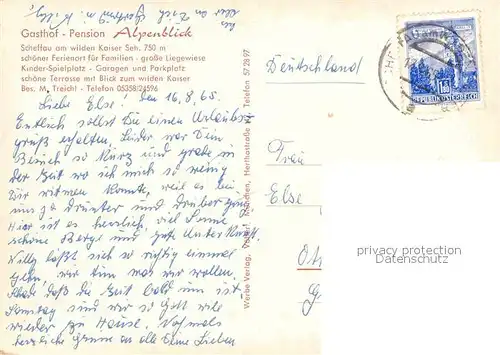 Gasthof - Pension Alpenblick
Scheffau am wilden Kaiser Seh. 750 m
schöner Ferienort für Familien - große Liegewiese
Kinder-Spielplatz - Garagen und Parkplatz
schöne Terrasse mit Blick zum wilden Kaiser
Bes. M. Treichl - Telefon 05358/24596
Liebe Else. den 16.8.65.
Endlich sollst Du einen Urlaubs-
gruß erhalten, Leider war Dein
Besuch so kurz und grade in
der Zeit wo ich mich so wenig
Dir widmen konnte, weil es bei
uns drunter und drüber ging
Hier ist es herrlich, viel Sonne
schöne Berge und gute Unterkunft.
Willy läßt sich so richtig einmal
gehn, wir tun was wir wollen.
Schade daß die Zeit bald um ist.
Samstag sind wir so Gott will
wieder zu Hause. Nochmals
herzliche Grüße an alle Deine Lieben
Werbe Verlag, München, Herthastraße Telefon 57 28 97
Deutschland
Frau
Else
REPUBLIK ÖSTERREICH
privacy protection
Datenschutz